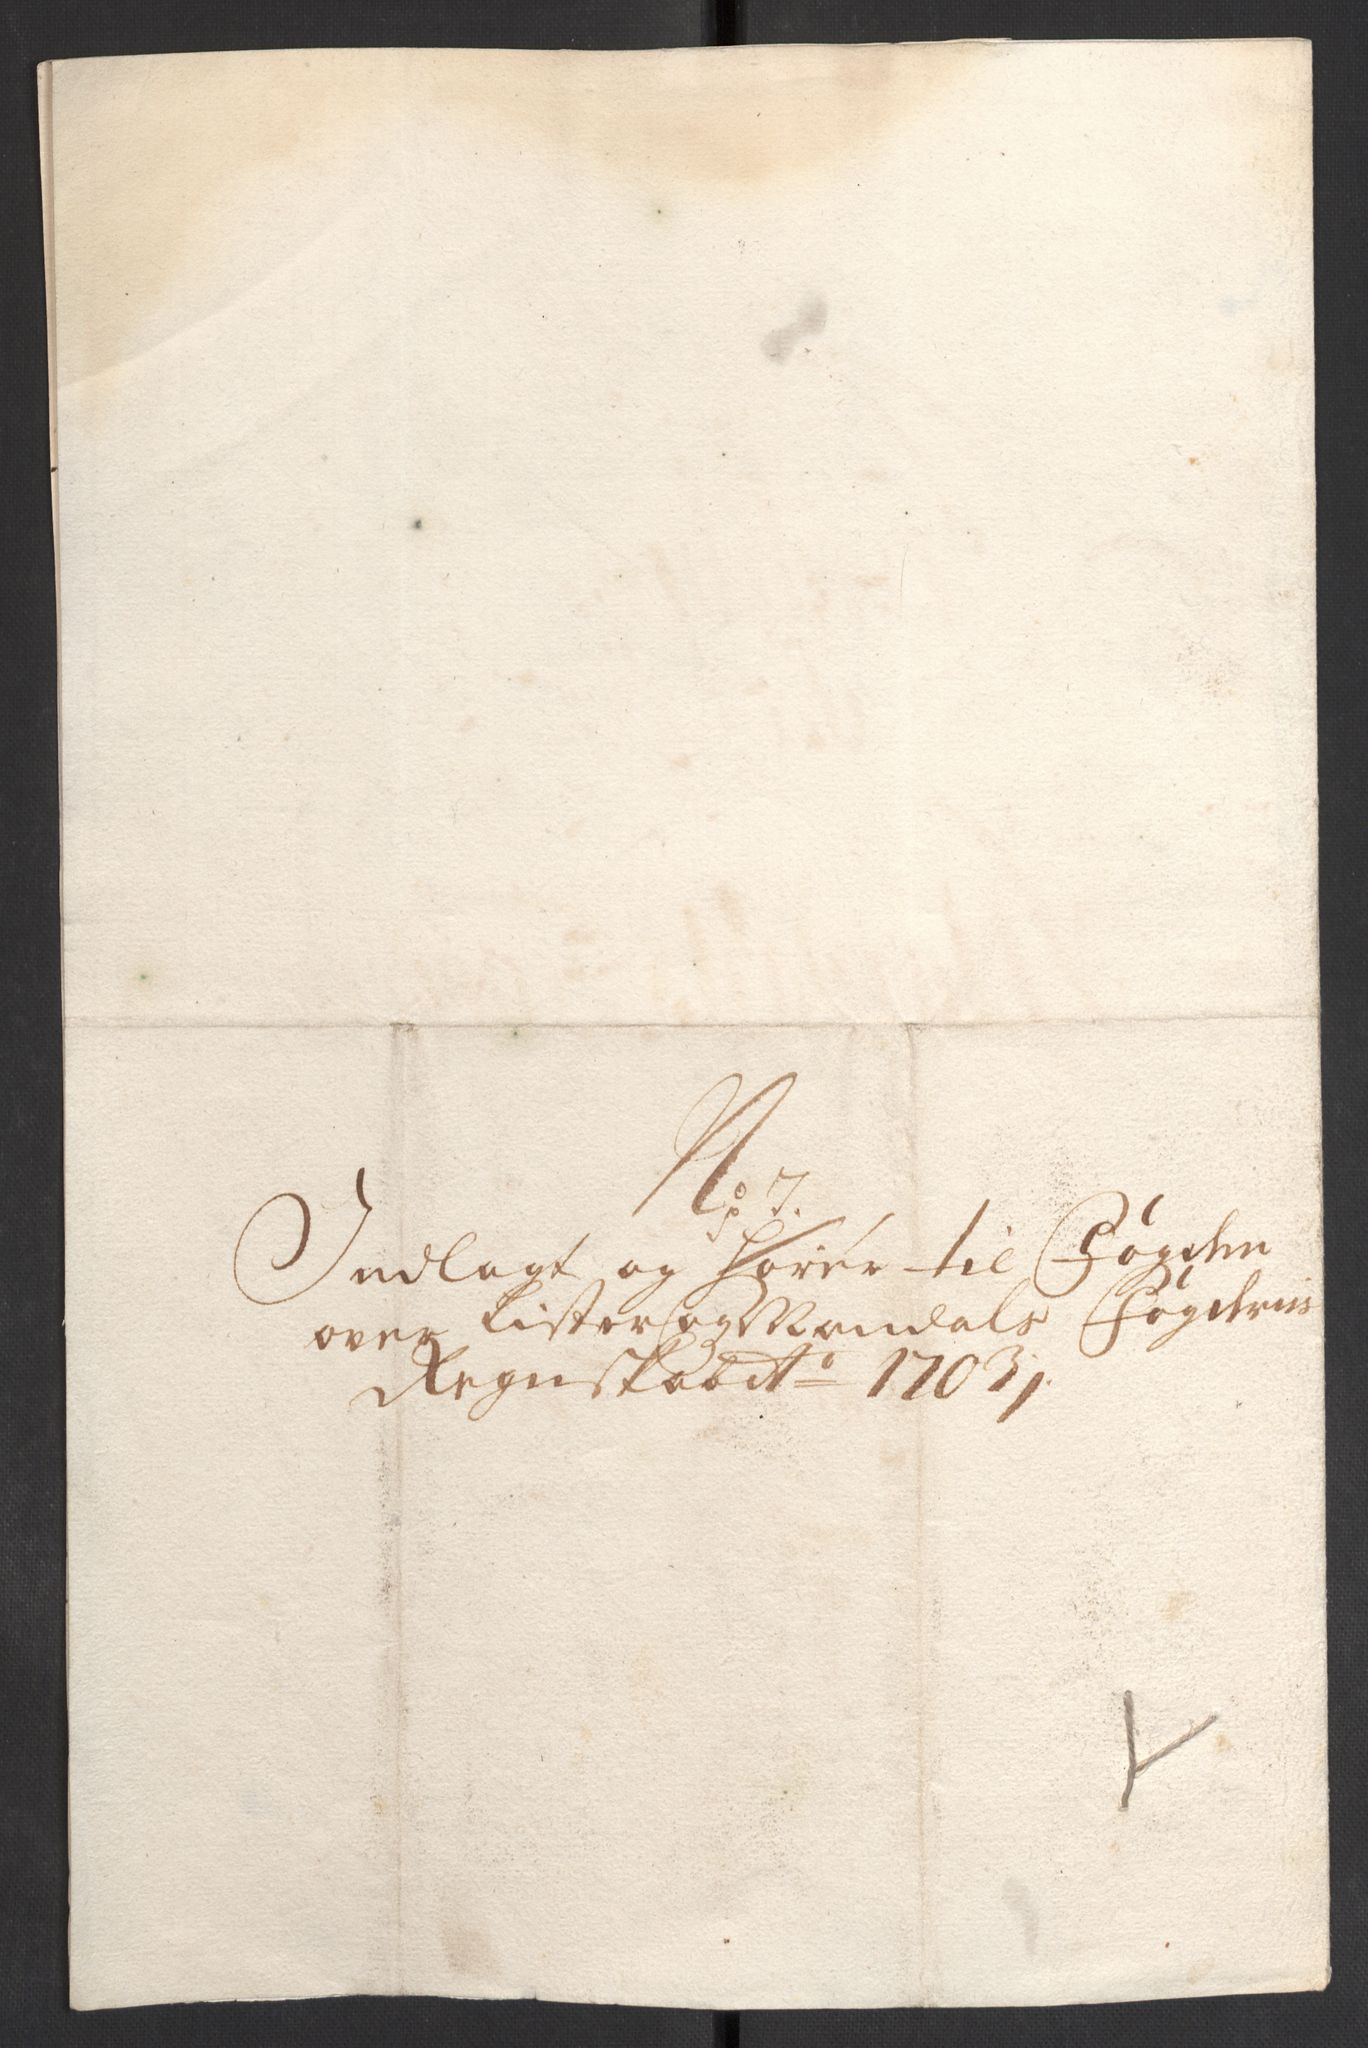 No 7.
Indlagt og hörer til Fögden
over Lister og Mandals Fögderiis
Regnskab Ao 1703.